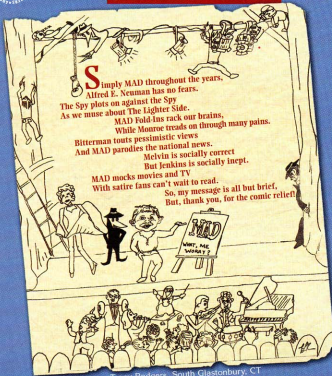 Simply MAD throughout the years,
Alfred E. Neuman has no fears.
The Spy plots on against the Spy
As we muse about The Lighter Side.
MAD Fold-Ins rack our brains,
While Monroe treads on through many pains.
Bitterman touts pessimistic views
And MAD parodies the national news.
Melvin is socially correct
But Jenkins is socially inept.
MAD mocks movies and TV
With satire fans can't wait to read.
So, my message is all but brief,
But, thank you, for the comic relief!
MAD
WHAT, ME
WORRY?
South Glastonbury, CT